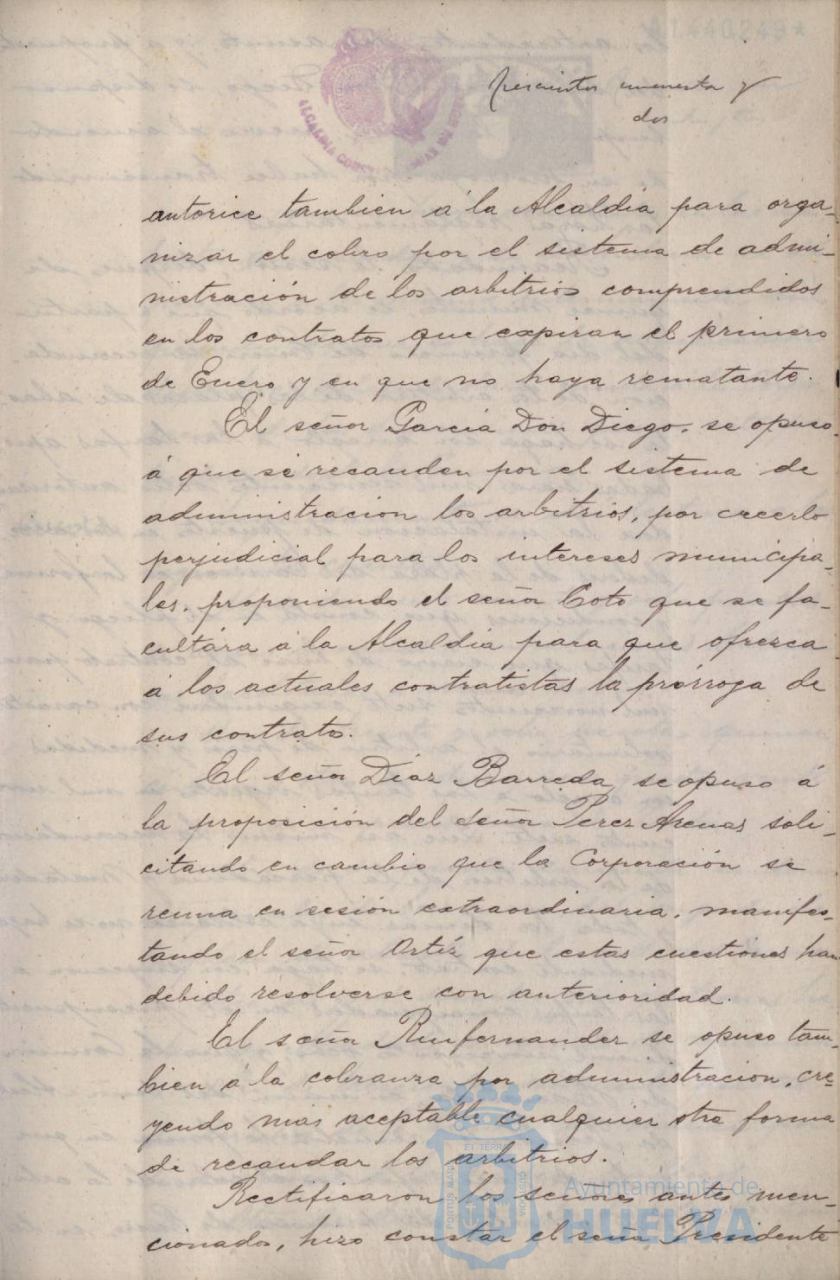 A1440249*
cuarenta y
dos
autorice tambien á la Alcaldía para orga-
nizar el cobro por el sistema de admi-
nistración de los arbitrios comprendidos
en los contratos que expiran el primero
de Enero y en que no haya rematante.
El señor García Don Diego, se opuso
á que se recauden por el sistema de
administracion los arbitrios, por creerlo
perjudicial para los intereses municipa-
les, proponiendo el señor Coto que se fa-
cultára á la Alcaldía para que ofrezca
á los actuales contratistas la prórroga de
sus contrato.
El señor Díaz Barreda, se opuso á
la proposición del señor Perez Arenas soli-
citando en cambio que la Corporación se
reuna en sesión extraordinaria, manifes-
tando el señor Ortíz que estas cuestiones han
debido resolverse con anterioridad.
El señor Ruifernandez se opuso tam-
bien á la cobranza por administracion, cre-
yendo mas aceptable cualquier otra forma
de recaudar los arbitrios.
Rectificaron los señores antes men-
cionados, hizo constar el señor Presidente
Ayuntamiento de
HUELVA